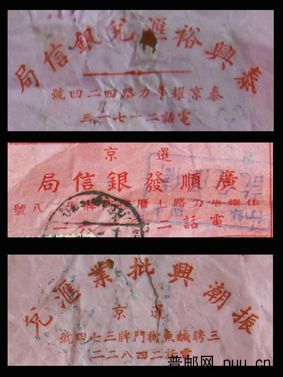 泰興裕匯兌銀信局
泰京耀華力路四二四號
電話二一七一三
暹京
廣順發銀信局
耀華力路七
號
電話二
振潮興批業匯兌
暹京
三聘鹹魚衕門牌三七四號
電話二四八二二
普邮网 puu.cn